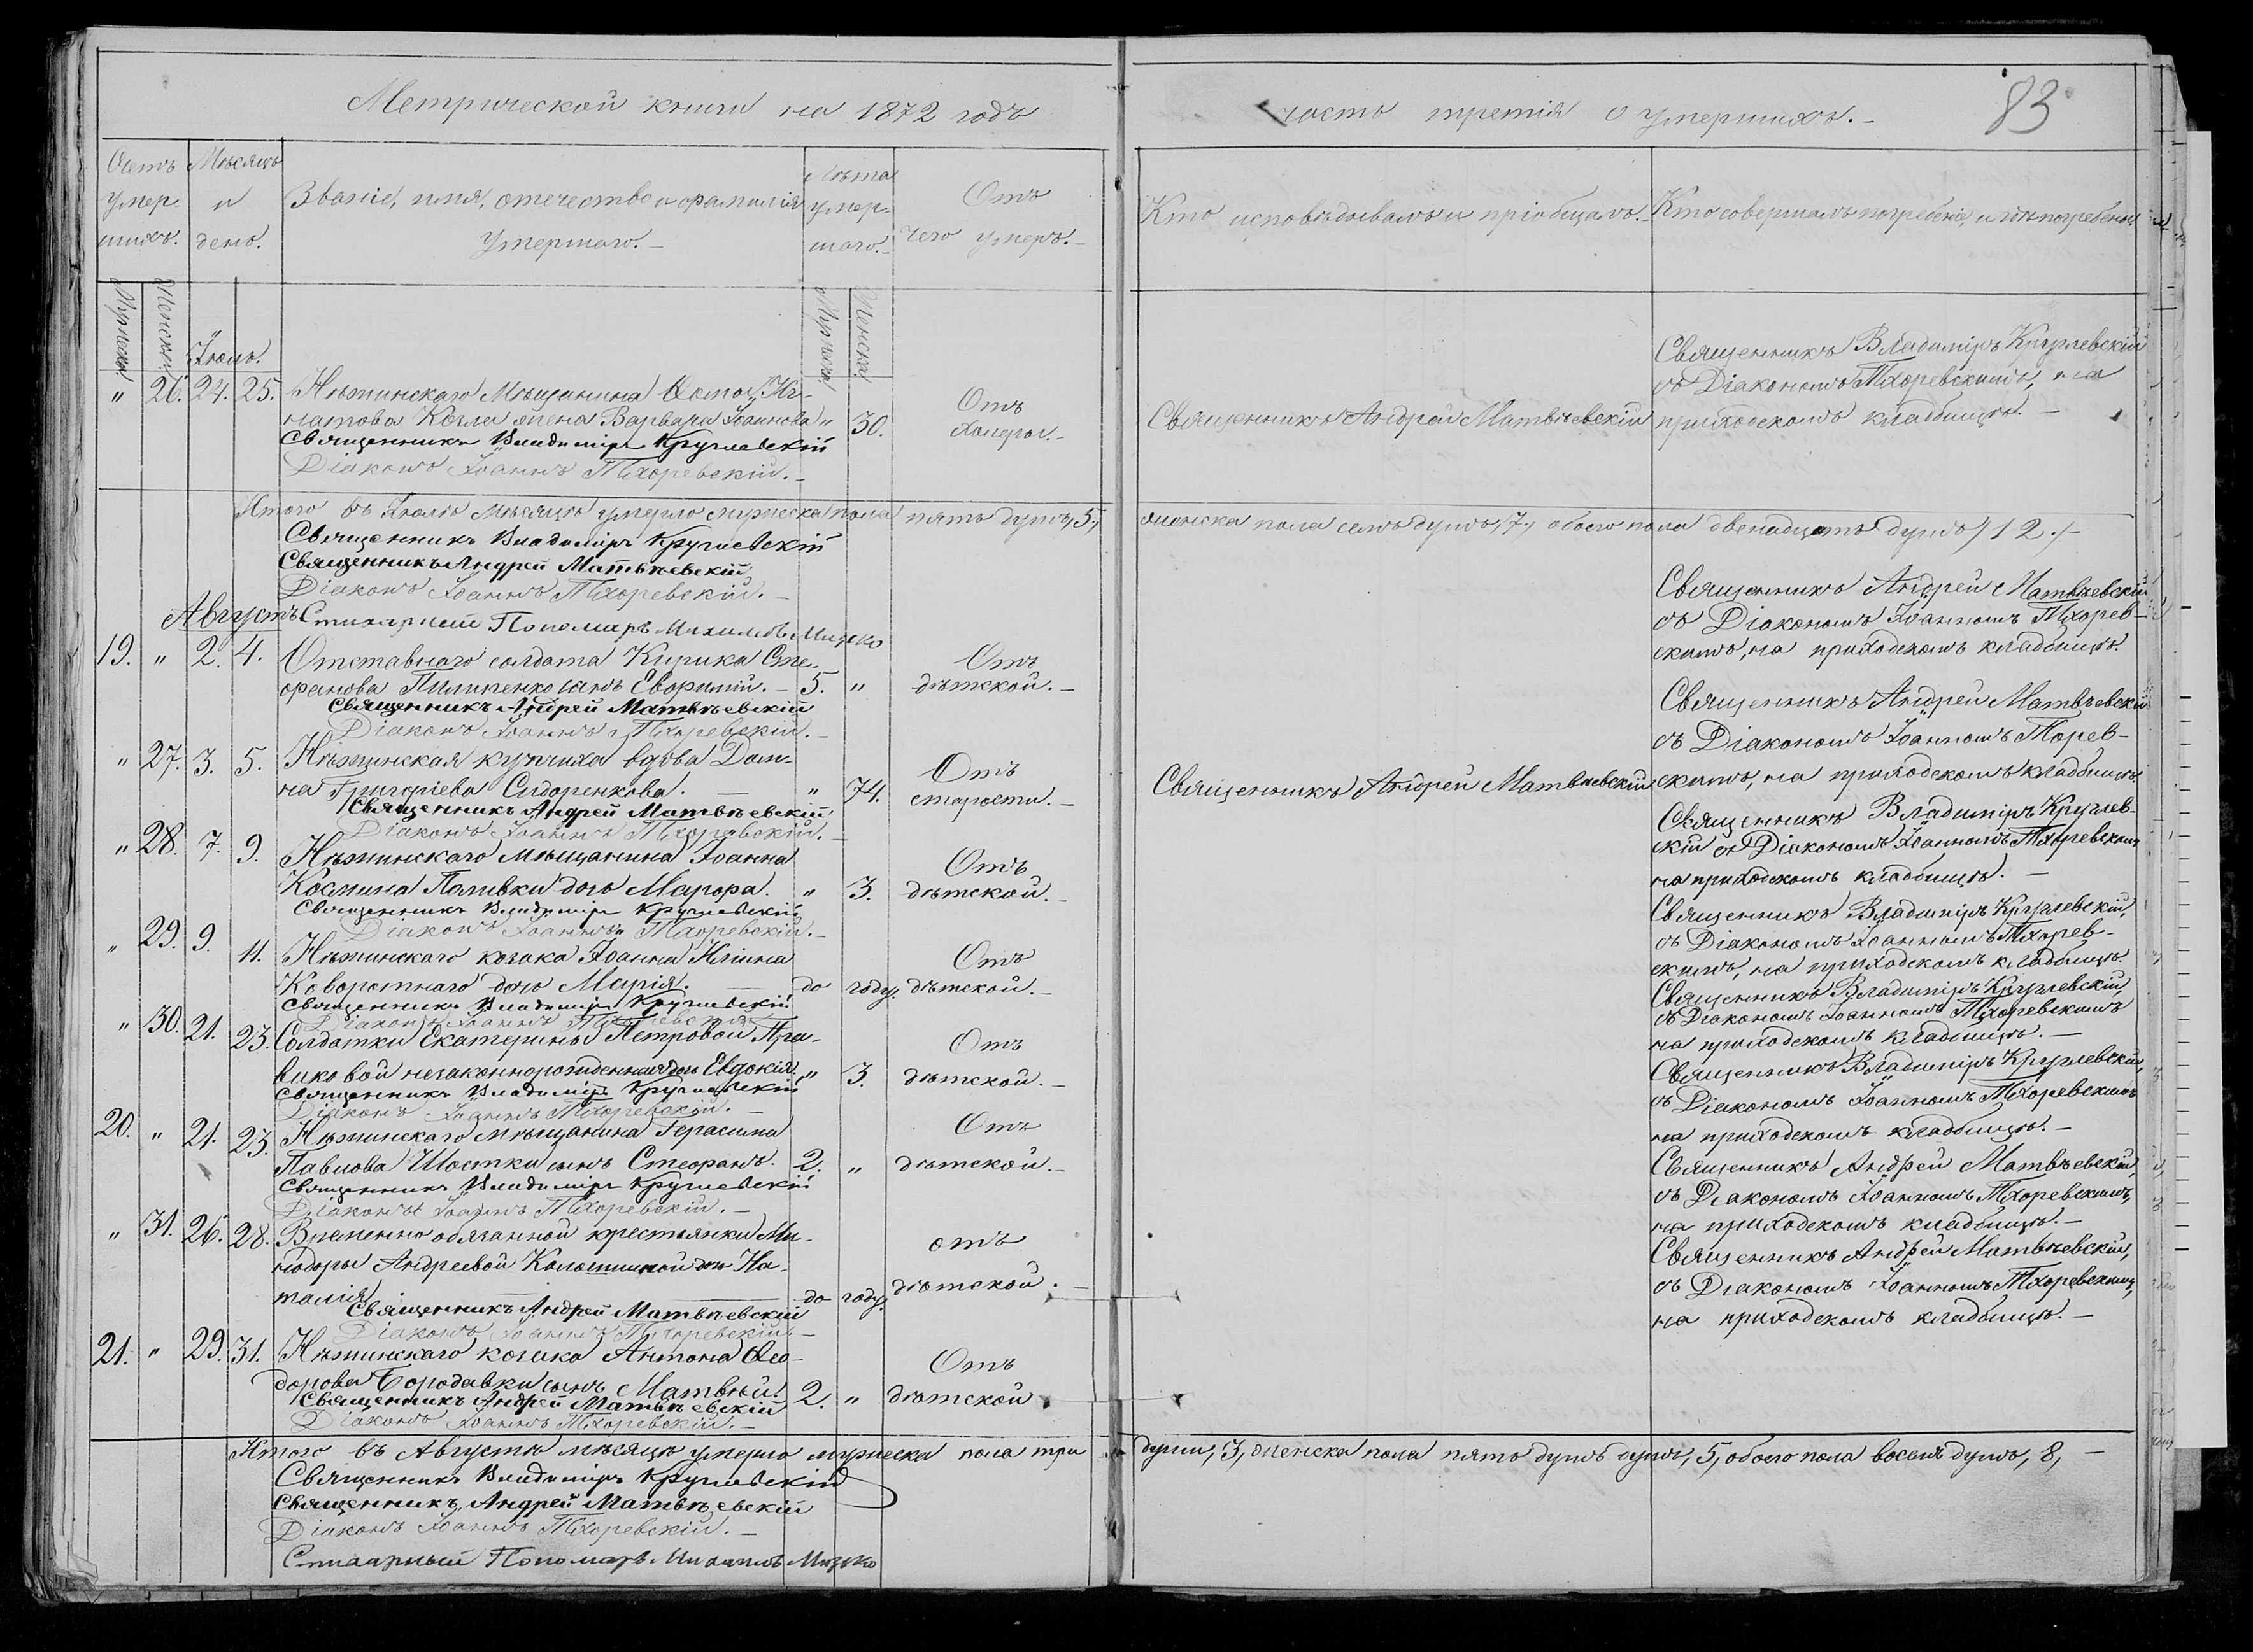 Метрической книги на 1872 годъ
часть третія о умершихъ.
83
Счетъ умер-
шихъ.
Мѣсяцъ
и
день.
Званіе, имя, отечество и фамилія
умершаго.
Лѣта
умер-
шаго.
Отъ
чего умеръ.
Кто исповѣдывалъ и пріобщалъ.
Кто совершалъ погребеніе, и гдѣ погребены
Мужеска
Женска
Мужеска
Женска
Іюль.
" 26. 24. 25. Нѣжинскаго Мѣщанина
жена Варвара Іоаннова " 30.
Отъ
холеры.
Священникъ Владиміръ Кружевскій
Діаконъ Іоаннъ Тхоревскій.
Священникъ Андрей Матвѣевскій
Священникъ Владиміръ Кружевскій
съ Діакономъ Тхоревскимъ, на
приходскомъ кладбищѣ.
Итого въ Іюлѣ мѣсяцѣ умерло мужеска пола пять душъ, 5, женска пола семь душъ, 7, обоего пола двенадцать душъ, 12.
Священникъ Владиміръ Кружевскій
Священникъ Андрей Матвѣевскій
Діаконъ Іоаннъ Тхоревскій.
Стихарный Пономарь Михаилъ
Августъ
19. " 2. 4. Отставнаго солдата Кирика Сте-
фанова Пилипенко сынъ Евфимій. 5. "
Отъ
дѣтской.
Священникъ Андрей Матвѣевскій
Діаконъ Іоаннъ Тхоревскій.
Священникъ Андрей Матвѣевскій
съ Діакономъ Іоанномъ Тхорев-
скимъ, на приходскомъ кладбищѣ.
" 27. 3. 5. Нѣжинская купчиха вдова Дом-
на Григоріева Сидоренкова. " 74.
Отъ
старости.
Священникъ Андрей Матвѣевскій
Діаконъ Іоаннъ Тхоревскій.
Священникъ Андрей Матвѣевскій
Священникъ Андрей Матвѣевскій
съ Діакономъ Іоанномъ Тхорев-
скимъ, на приходскомъ кладбищѣ.
" 28. 7. 9. Нѣжинскаго мѣщанина Іоанна
Космина Паливки дочь Марфа. " 3.
Отъ
дѣтской.
Священникъ Владиміръ Кружевскій
Діаконъ Іоаннъ Тхоревскій.
Священникъ Владиміръ Кружев-
скій съ Діакономъ Іоанномъ Тхоревскимъ
на приходскомъ кладбищѣ.
" 29. 9. 11. Нѣжинскаго козака Іоанна Иліина
Коворотнаго дочь Марія. до году.
Отъ
дѣтской.
Священникъ Владиміръ Кружевскій
Діаконъ Іоаннъ Тхоревскій
Священникъ Владиміръ Кружевскій,
съ Діакономъ Іоанномъ Тхорев-
скимъ, на приходскомъ кладбищѣ
" 30. 21. 23. Солдатки Екатерины Петровой
незаконнорожденная дочь Евдокія. " 3.
Отъ
дѣтской.
Священникъ Владиміръ Кружевскій
Діаконъ Іоаннъ Тхоревскій.
Священникъ Владиміръ Кружевскій,
съ Діакономъ Іоанномъ Тхоревскимъ
на приходскомъ кладбищѣ.
20. " 21. 23. Нѣжинскаго мѣщанина Герасима
Павлова Шостки сынъ Стефанъ. 2. "
Отъ
дѣтской.
Священникъ Владиміръ Кружевскій
Діаконъ Іоаннъ Тхоревскій.
Священникъ Владиміръ Кружевскій,
съ Діакономъ Іоанномъ Тхоревскимъ
на приходскомъ кладбищѣ.
" 31. 26. 28. Временно обязанной крестьянки Ми-
нодоры Андреевой дочь На-
талія до году.
отъ
дѣтской.
Священникъ Андрей Матвѣевскій
Діаконъ Іоаннъ Тхоревскій.
Священникъ Андрей Матвѣевскій,
съ Діакономъ Іоанномъ Тхоревскимъ,
на приходскомъ кладбищѣ.
21. " 29. 31. Нѣжинскаго козака Антона Ѳео-
дорова Бородавки сынъ Матвѣй. 2. "
Отъ
дѣтской
Священникъ Андрей Матвѣевскій
Діаконъ Іоаннъ Тхоревскій.
Священникъ Андрей Матвѣевскій,
съ Діакономъ Іоанномъ Тхоревскимъ,
на приходскомъ кладбищѣ.
Итого въ Августѣ мѣсяцѣ умерло мужеска пола три души, 3, женска пола пять душъ душъ, 5, обоего пола восемь душъ, 8,
Священникъ Владиміръ Кружевскій
Священникъ Андрей Матвѣевскій
Діаконъ Іоаннъ Тхоревскій.
Стихарный Пономарь Михаилъ